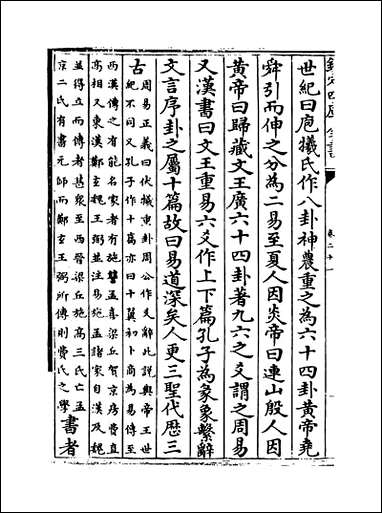 欽定四庫全書
卷二十一
世紀曰庖犧氏作八卦神農重之為六十四卦黃帝堯
舜引而伸之分為二易至夏人因炎帝曰連山殷人因
黃帝曰歸藏文王廣六十四卦著九六之爻謂之周易
又漢書曰文王重易六爻作上下篇孔子為彖象繫辭
文言序卦之屬十篇故曰易道深矣人更三聖代歷三
古
周易正義曰伏犧重卦周公作爻辭此說與帝王世
紀不同又孔子作十篇亦曰十翼初卜商為易傳至
西漢傳之有能名家者有施讎孟喜梁丘賀京房費直
高相又東漢鄭玄魏王弼並注易施孟諸家自漢及魏
並得立而傳者甚衆至西晉梁丘施高三氏亡孟
京二氏有書元師而鄭玄王弼所傳則費氏之學
書者